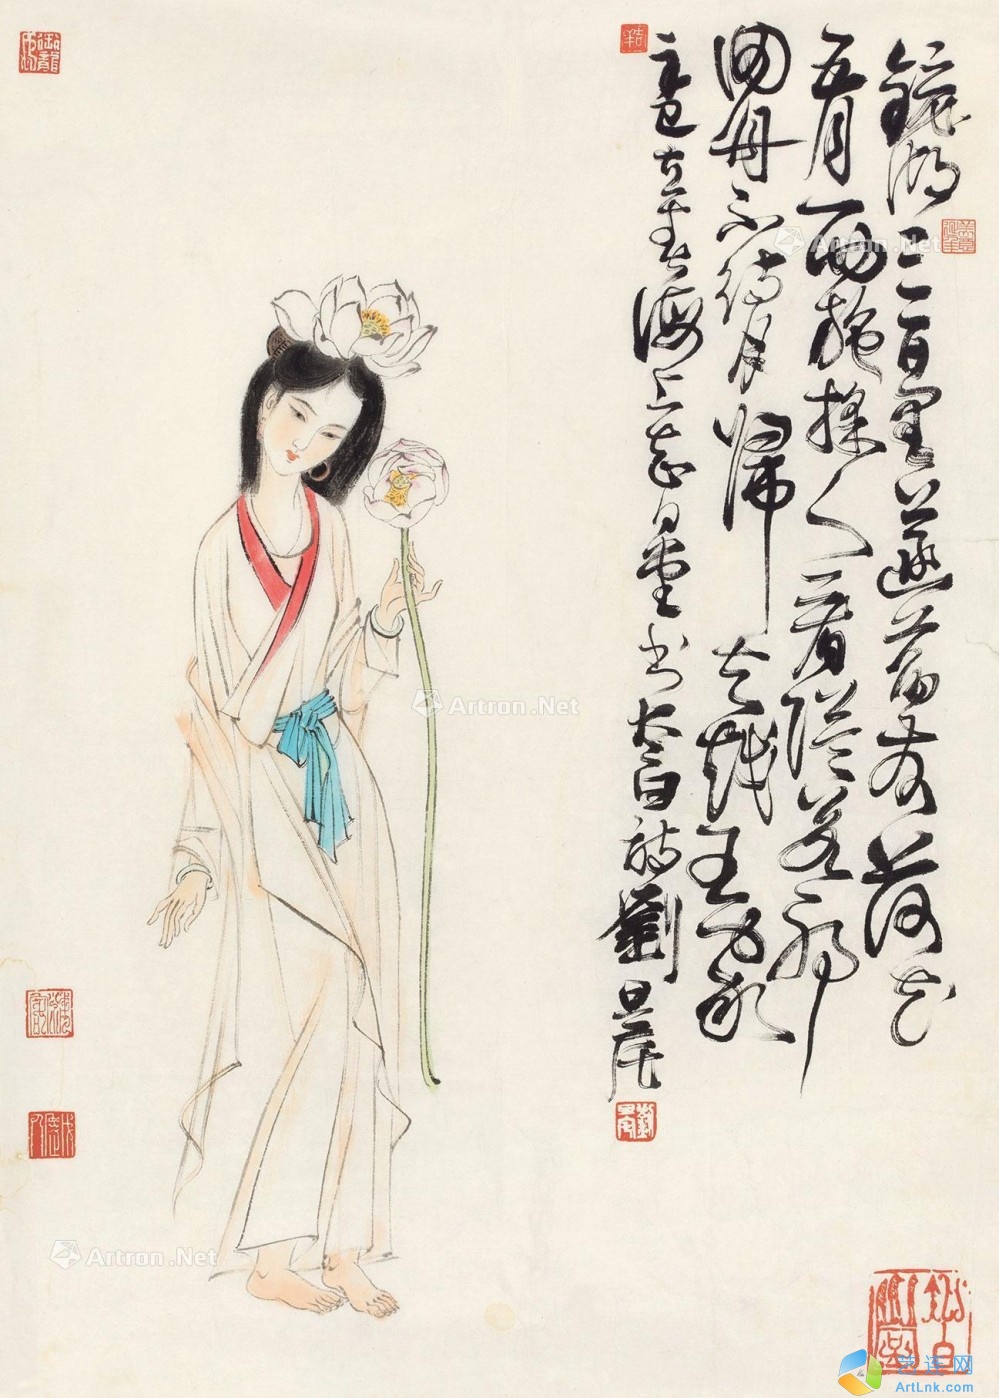 鏡湖三百里菡萏发荷花
五月西施採人看隘若耶
回舟不待月歸去越王家
辛巳立春海上書太白詩劉旦宅
Artron.Net
Artron.Net
Artron.Net
艺连网
ArtLnk.com